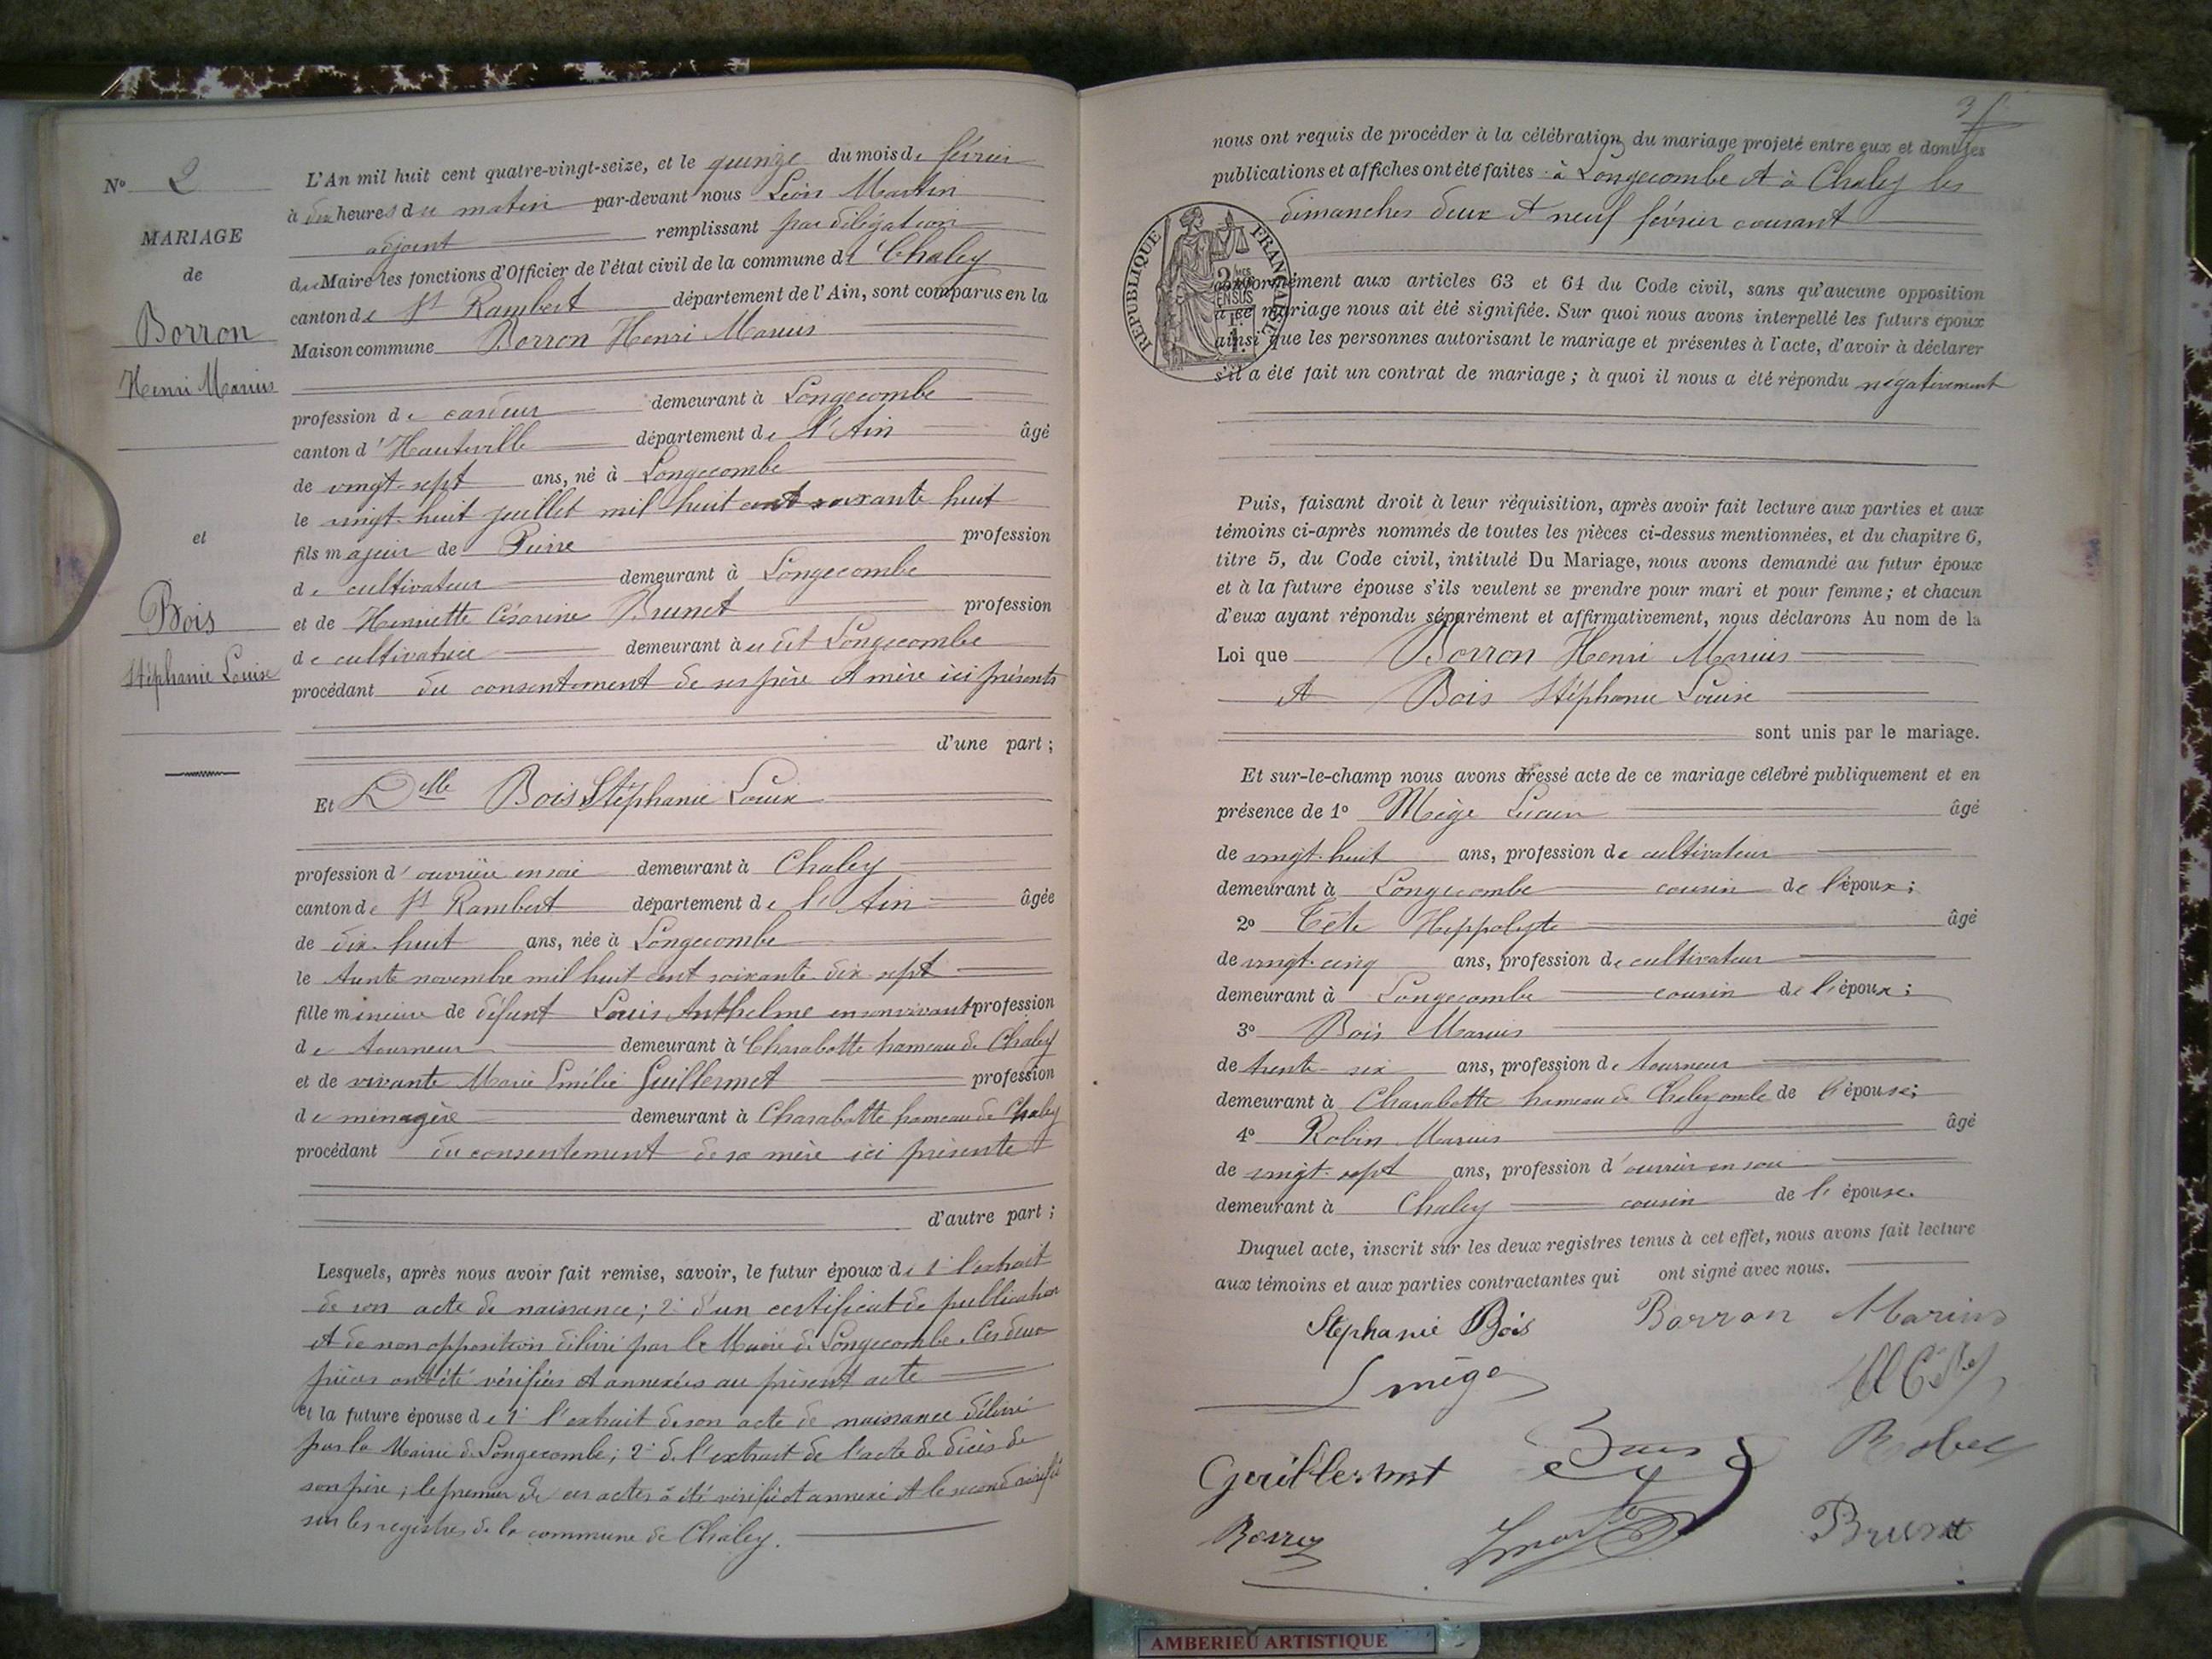 N° 2
MARIAGE
de
Borron
Henri Marius
et
Bois
Stéphanie Louise
L'An mil huit cent quatre-vingt-seize, et le quinze du mois de février
à dix heures du matin par-devant nous Léon Martin
adjoint remplissant par délégation
du Maire les fonctions d'Officier de l'état civil de la commune de Chaley
canton de St Rambert département de l'Ain, sont comparus en la
Maison commune Borron Henri Marius
profession de demeurant à Longecombe
canton d'Hauteville département de l'Ain âgé
de vingt-sept ans, né à Longecombe
le vingt-huit juillet mil huit cent soixante huit
fils majeur de Pierre profession
de cultivateur demeurant à Longecombe
et de Henriette Césarine Brunet profession
de cultivatrice demeurant au dit Longecombe
procédant du consentement de ses père et mère ici présents
d'une part ;
Et Delle Bois Stéphanie Louise
profession d'ouvrière en soie demeurant à Chaley
canton de St Rambert département de l'Ain âgée
de dix-huit ans, née à Longecombe
le trente novembre mil huit cent soixante-dix-sept
fille mineure de défunt Louis Anthelme en son vivant profession
de tourneur demeurant à Charabotte hameau de Chaley
et de vivante Marie Emélie Guillermet profession
de ménagère demeurant à Charabotte hameau de Chaley
procédant du consentement de sa mère ici présente
d'autre part ;
Lesquels, après nous avoir fait remise, savoir, le futur époux de 1° l'extrait
de son acte de naissance ; 2° d'un certificat de publication
et de non opposition délivré par le Maire de Longecombe. Ces deux
pièces ont été vérifiées et annexées au présent acte
et la future épouse de 1° l'extrait de son acte de naissance délivré
par la Mairie de Longecombe ; 2° de l'extrait de l'acte de décès de
son père ; le premier de ces actes a été vérifié et annexé et le second vérifié
sur les registres de la commune de Chaley.
nous ont requis de procéder à la célébration du mariage projeté entre eux et dont les
publications et affiches ont été faites : à Longecombe et à Chaley les
dimanches deux et neuf février courant
RÉPUBLIQUE FRANÇAISE
conformément aux articles 63 et 64 du Code civil, sans qu'aucune opposition
à ce mariage nous ait été signifiée. Sur quoi nous avons interpellé les futurs époux
ainsi que les personnes autorisant le mariage et présentes à l'acte, d'avoir à déclarer
s'il a été fait un contrat de mariage ; à quoi il nous a été répondu négativement
Puis, faisant droit à leur réquisition, après avoir fait lecture aux parties et aux
témoins ci-après nommés de toutes les pièces ci-dessus mentionnées, et du chapitre 6,
titre 5, du Code civil, intitulé Du Mariage, nous avons demandé au futur époux
et à la future épouse s'ils veulent se prendre pour mari et pour femme ; et chacun
d'eux ayant répondu séparément et affirmativement, nous déclarons Au nom de la
Loi que Borron Henri Marius
et Bois Stéphanie Louise
sont unis par le mariage.
Et sur-le-champ nous avons dressé acte de ce mariage célébré publiquement et en
présence de 1° Mège Lucien âgé
de vingt-huit ans, profession de cultivateur
demeurant à Longecombe cousin de l'époux ;
2° Hippolyte âgé
de vingt-cinq ans, profession de cultivateur
demeurant à Longecombe cousin de l'époux ;
3° Bois Marius
de trente-six ans, profession de tourneur
demeurant à Charabotte hameau de Chaley oncle de l'épouse ;
4° Robin Marius âgé
de vingt-sept ans, profession d'ouvrier en soie
demeurant à Chaley cousin de l'épouse.
Duquel acte, inscrit sur les deux registres tenus à cet effet, nous avons fait lecture
aux témoins et aux parties contractantes qui ont signé avec nous.
Stéphanie Bois Borron Marius
L mège
Guillermet
Brunet
AMBERIEU ARTISTIQUE